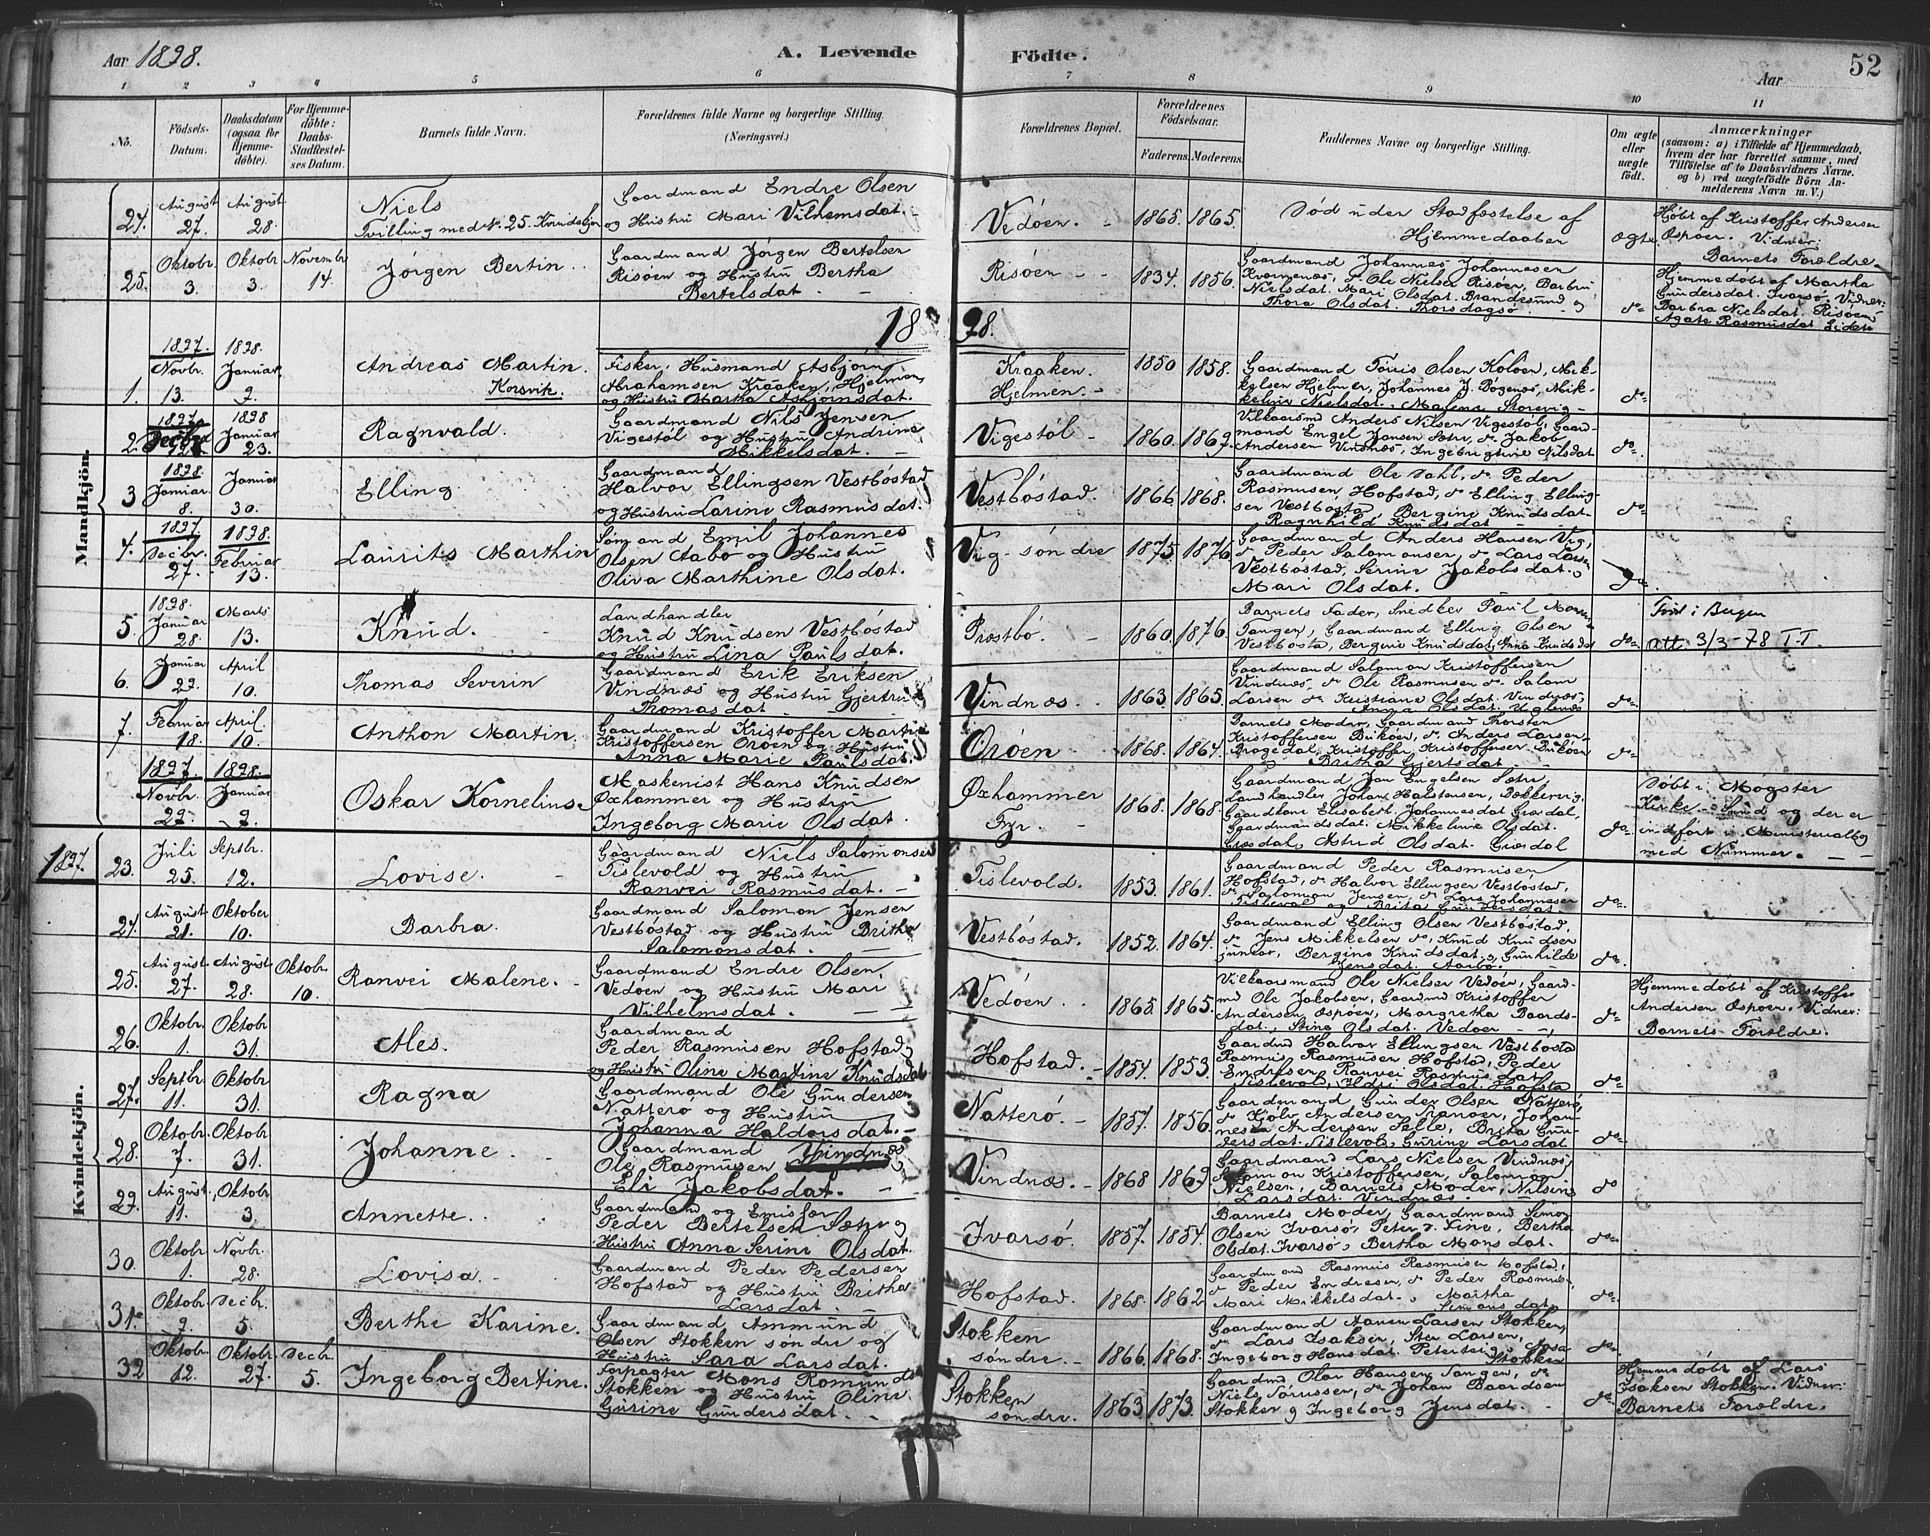 Aar 1898.
A. Levende Födte.
Aar
52
1 2 3 4 5 6 7 8 9 10 11
No.
Födsels-Datum.
Daabsdatum (ogsaa for Hjemme-döbte).
For Hjemme-döbte: Daabs-Stadfæstel-ses Datum.
Barnets fulde Navn.
Forældrenes fulde Navne og borgerlige Stilling. (Næringsvei.)
Forældrenes Bopæl.
Forældrenes Födselsaar.
Faderens. Moderens.
Faddernes Navne og borgerlige Stilling.
Om ægte eller uægte födt.
Anmærkninger
(saasom: a) i Tilfælde af Hjemmedaab, hvem der har forrettet samme, med Tilföielse af to Daabsvidners Navne, og b) ved uægtefödte Börn An-melderens Navn m. V.)
Mandkjön.
24. August 27. August 28. Niels Tvilling med No. 25. Kvindekjøn Gaardmand Endre Olsen og Hustru Mari Vilhemsdat. Vedöen. 1865. 1865. Död inden Stadfæstelse af Hjemmedaaben ægte. Hjemmedøbt af Kristoffer Andersen Ospøen. Vidner: Barnets Forældre.
25. Oktobr. 3. Oktobr 3. Novembr 14. Jørgen Bertin. Gaardmand Jørgen Bertelsen Risöen og Hustru Bertha Bertelsdat. Risöen 1834. 1856. Gaardmand Johannes Johannesen Kvernenæs, do Ole Nielsen Risöen, Barbru Nielsdat. Mari Olsdat. Brandesund og Thora Olsdat. Thorsdagsø. do Hjemmedøbt af Martha Gundersdat. Ivarsö. Vidner: Barbra Nielsdat. Risöen, Agate Rasmusdat.
1898.
1. 1897. Novbr. 13. 1898. Januar 9. Andreas Martin. Korsvik. Fisker, Husmand Asbjørn Abrahamsen Kraaken, Hjelmen, og Hustru Martha Asbjørnsdat. Kraaken Hjelmen. 1850 1858. Gaardmand Olsen Kolöen, Mikkelsen Hjelmen, Johannes J. Bøgenæs, Mikkeline Nielsdat., Malene Storevig do
2. 1897. Decbr. 1898 Januar 23. Ragnvald. Gaardmand Nils Jensen Vigestöl og Hustru Andrine Mikkelsdat. Vigestöl 1860. 1869. Vilkaarsmd Anders Nilsen Vigestöl, Gaardmand Engel Jansen Sætre, do Jakob Andersen Vindnæs, Ingebrigtine Nilsdat do
3 1898 Januar 8. Januar 30. Elling. Gaardmand Halvor Ellingsen Vestbóstad og Hustru Larine Rasmusdat. Vestbóstad. 1866. 1868. Gaardmand Ole Dahl, do Peder Rasmusen, Hofstad, do Elling Ellingsen Vestbostad, Bergine Knudsdat. Ragnhild Knudsdat do
4. 1897 Decbr. 27. 1898. Februar 13. Laurits Marthin Sømand Emil Johannes Olsen og Hustru Oliva Marthine Olsdat. Vig søndre 1875 1876. Gaardmand Anders Hansen Vig, do Peder Salomonsen, do Lars Larsen Vestbostad, Serine Jakobsdat. Mari Olsdat. do
5. 1898. Januar 28. Marts 13. Knud. Landhandler Knud Knudsen Vestbóstad og Hustru Lina Paulsdat. Præstbö. 1860. 1876. Barnets Fader, Snedker Paul Tangen, Gaardmand Elling Olsen Vestbosta, Bergine Knudsdat, Anna Knudsdat do i Bergen att. 3/3-78 I.T.
6. Januar 29. April 10. Thomas Severin Gaardmand Erik Eriksen Vindnæs og Hustru Gjertrud Thomasdat Vindnæs. 1863. 1865. Gaardmand Salomon Kristoffersen Vindnæs, do Ole Rasmusen do Salom Larsen do Kristiane Olsdat. Vindnæs. Anna Olsdat. do
7. Februar 18. April 10. Anthon Martin. Gaardmand Kristoffer Martin Kristoffersen Oröen og Hustru Anna Marie Paulsdat. Oröen 1868. 1864. Barnets Moder, Gaardmand Thorsten Kristoffersen Bukøen, do Anders Larsen, Kristoffer Kristoffersen Bukøen Britha Gjertsdat do
1897 Novbr. 29. 1898. Januar 9. Oskar Kornelius. Maskenist Hans Knudsen Oxhammer og Hustru Ingeborg Marie Olsdat. Oxhammer Fyr. 1868. 1868. Gaardmand Jan Engelsen Sætre, Landhandler Johan Halstensen, Bekkervig, Gaardkone Elisabet Johannesdat Græsdal, Gaardmandsdat. Mikkeline Olsdat. Græsdal, Astrid Olsdat. Græsdal do Döbt i Møgster Kirke Sund og der er indfört i Ministerialbog med Nummer.
Kvindekjön.
1897. 23. Juli 25. Septbr. 12. Lovise. Gaardmand Niels Salomonsen Tislevold og Hustru Ranvei Rasmusdat. Tislevold. 1853. 1861. Gaardmand Peder Rasmusen Hofstad, do Halvor Ellingsen Vestbostad, do Salomon Jensen, do Lars Johannesen Tislevold og Brita Gundersdat do
24. August 21. Oktober 10. Barbra. Gaardmand Salomon Jensen Vestbostad og Hustru Britha Salomonsdat. Vestbóstad. 1852. 1864. Gaardmand Elling Olsen Vestbostad, do Jens Mikkelsen do, Knud Knudsen Bergine Knudsdat., Gunhilde Jensdat. do
25. August 27. August 28. Oktobr. 10. Ranvei Malene. Gaardmand Endre Olsen Vedøen og Hustru Mari Vilhelmsdat. Vedöen. 1865. 1865. Vilkaarsmand Ole Nielsen Vedøen, Gaardmd Ole Jakobsen, Gaardmd Kristoffer Andersen Ospøen, Margretha Baardsdat., Stine Olsdat. Vedøen do Hjemmedöbt af Kristoffer Andersen Ospøen. Vidner: Barnets Forældre.
26. Oktobr. 1. Oktobr 31. Ales. Gaardmand Peder Rasmusen Hofstad og Hustru Oline Martine Knudsdat Hofstad. 1854. 1853. Gaardmd Halvor Ellingsen Vestbosta Rasmus Rasmusen Hofstad, Peder Endresen Ranvei Rasmusdat Tislevold, Ildri Olsdat. Hofsta do
27. Septbr. 11. Oktobr 31. Ragna Gaardmand Ole Gundersen Natterö og Hustru Johanna Haldorsdat. Natterö. 1857. 1856. Gaardmand Gunder Olsen Natterö, do Andersen Johannes Andersen Selle, Brita Gundersdat Tislevol, Gurine Larsdat do
28. Oktobr. 7. Oktobr 31. Johanne. Gaardmand Ole Rasmusen Vindnæs Eli Jakobsdat. Vindnæs. 1868 1869 Gaardmand Lars Nielsen Vindnæs, Salomon Kristoffersen, Salomon Nielsen, Barnets Moder, Nilsine Larsdat Vindnæs. do
29. August. 11. Oktobr. 3. Annette. Gaardmand og Emisfær Peder Bertelsen Sætre og Hustru Anna Serine Olsdat. Ivarsö. 1857. 1854. Barnets Moder, Gaardmand Simon Olsen Ivarsö, Peter do Fine, Bertha Olsdat. Ivarsö, Bertha Monsdat. do
30. Oktobr. 1. Novbr. 28. Lovisa. Gaardmand Peder Pedersen Hofstad og Hustru Britha Larsdat. Hofstad. 1868. 1862 Gaardmand Rasmus Rasmusen Hofstad, do Peder Endresen, do Peder Rasmus-, Mari Mikkelsdat., Martha Simonsdat. do
31. Oktobr. 9. Decbr. 5. Berthe Karine. Gaardmand Ammund Olsen Stokken søndre og Hustru Sara Larsdat. Stokken søndre. 1866. 1868. Gaardmand Aanen Larsen Stokken, do Lars Isaksen, Sten Larsen, Ingeborg Hansdat. Petersteig, Josa Stokken do
32 Oktobr. 12. Oktobr. 27. Decbr. 5. Ingeborg Bertine. Forpagter Mons Romundsen Stokken og Hustru Oline Gurine Gundersdat. Stokken søndre. 1863 1873. Gaardmd Olar Hansen Tangen, do Niels do Johan Baardsen Stokken og Ingeborg Jensdat. do Hjemmedöbt af Lars Isaksen Stokken. Vidner: Barnets Forældre.